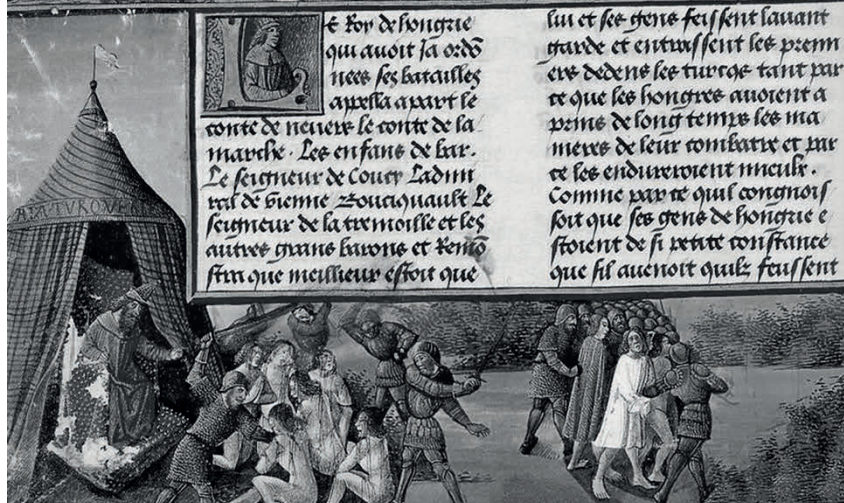 Le Roy de hongrie
qui auoit Ja ordō
nees ses batailles
apella a part le
conte de neuers le conte de la
marche . Les enfans de bar .
Le seigneur de Coucy Ladmi
ral de vienne Bouciquault Le
seigneur de la tremoille et les
autres grans barons et Remō
stra que meillieur estoit que
lui et ses gens feissent lauant
garde et entrassent les premi
ers dedens les turcqs tant par
ce que les hongres auoient a
prins de long temps les ma
nieres de leur combatre et par
ce les endureroient mieulx .
Comme par ce quil congnois
soit que ses gens de hongrie e
stoient de si petite constance
que sil auenoit quilz feussent